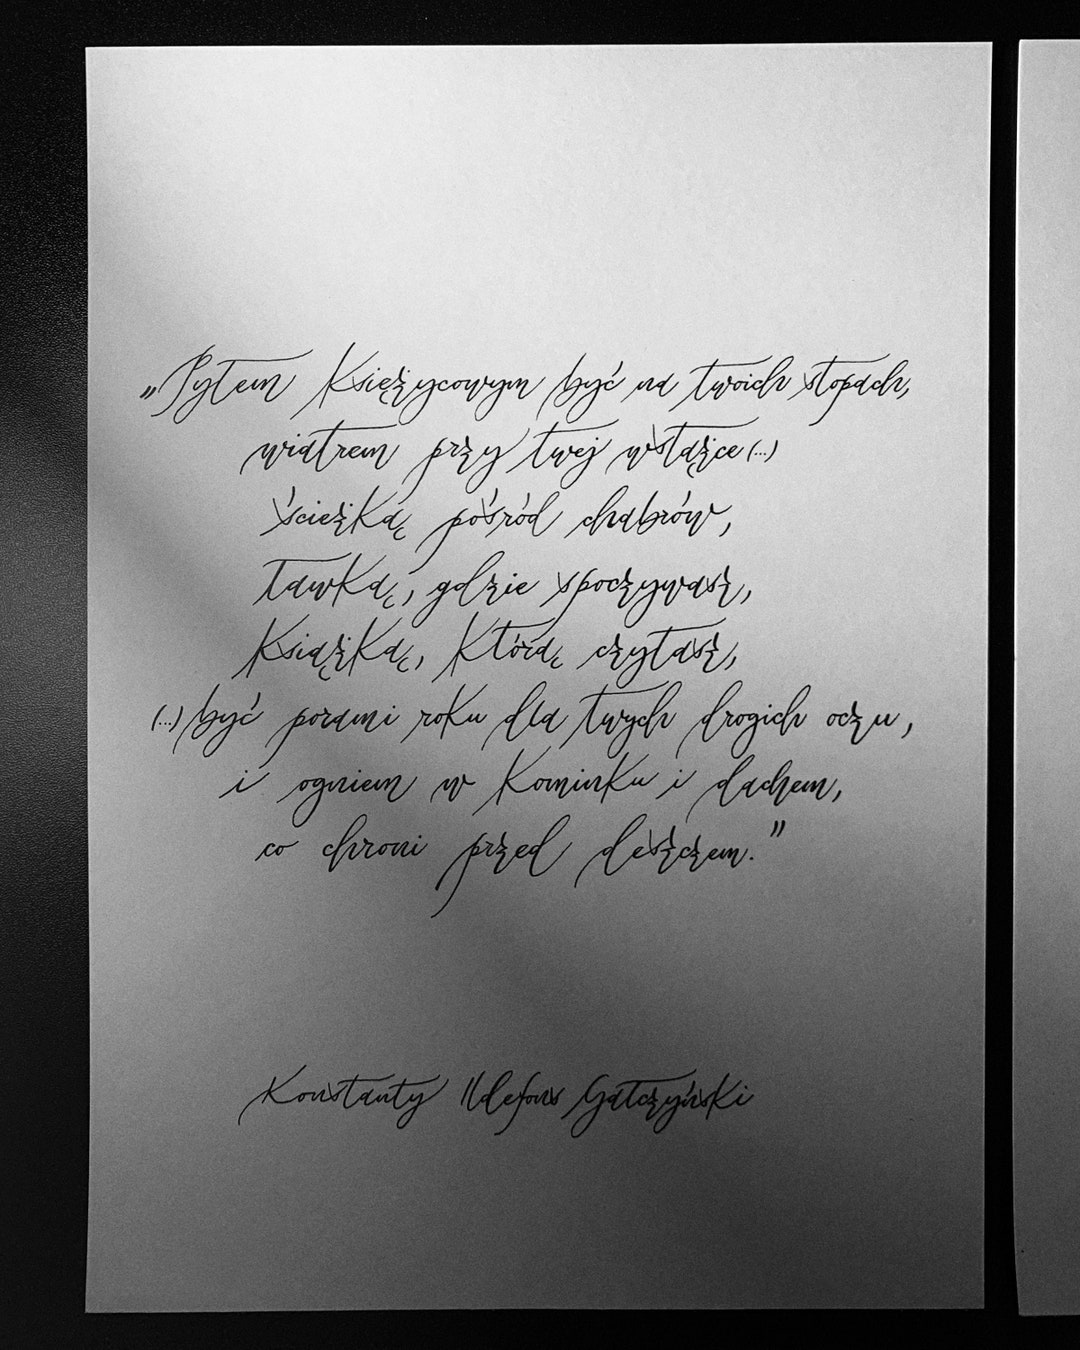 „Pyłem księżycowym być na twoich stopach,
wiatrem przy twej wstążce (...)
ścieżką pośród chabrów,
ławką, gdzie spoczywasz,
książką, którą czytasz,
(...) być porami roku dla twych drogich oczu,
i ogniem w kominku i dachem,
co chroni przed deszczem."
Konstanty Ildefons Gałczyński